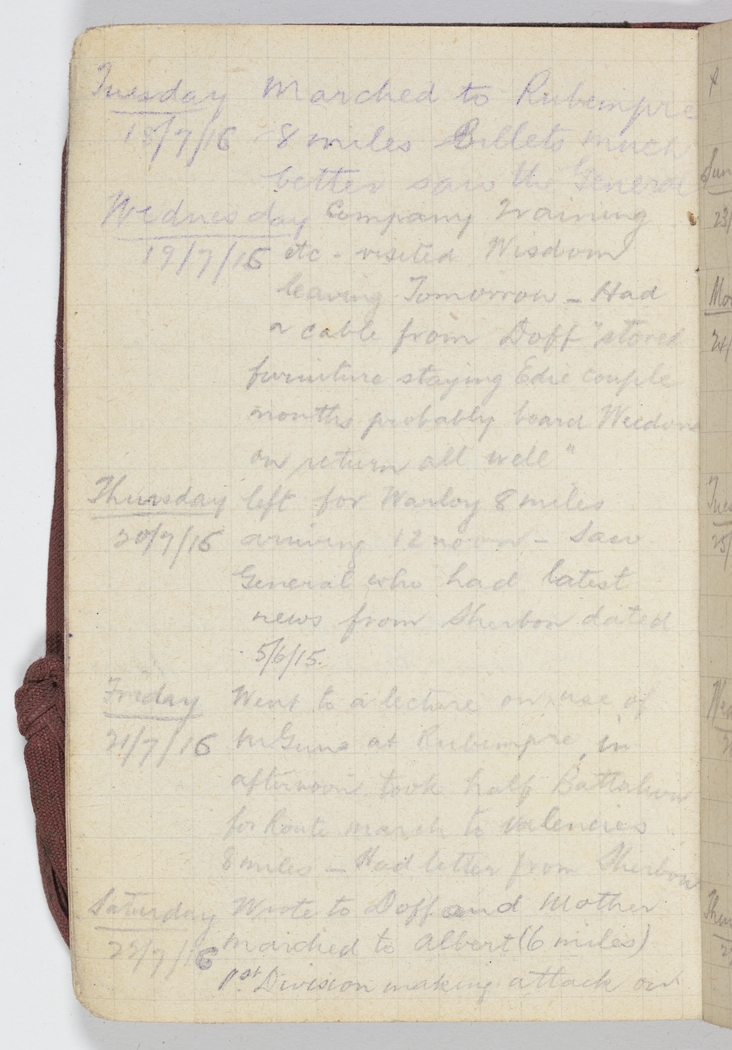 Tuesday Marched to Rubempre
18/7/16 8 miles Billets much
better saw the General
Wednesday Company Training
19/7/16 etc - visited Wisdom
leaving Tomorrow - Had
a cable from Doff "stored
furniture staying Edie couple
months probably board Weedons
on return all well"
Thursday left for Warloy 8 miles
20/7/16 arriving 12 noon - Saw
General who had latest
news from Sherbon dated
5/6/15.
Friday Went to a lecture on use of
21/7/16 M Guns at Rubempre, in
afternoon took half Battalion
for Route march to Valencies
8 miles - Had letter from Sherbon
Saturday Wrote to Doff and Mother
22/7/16 marched to Albert (6 miles)
1st Division making attack on